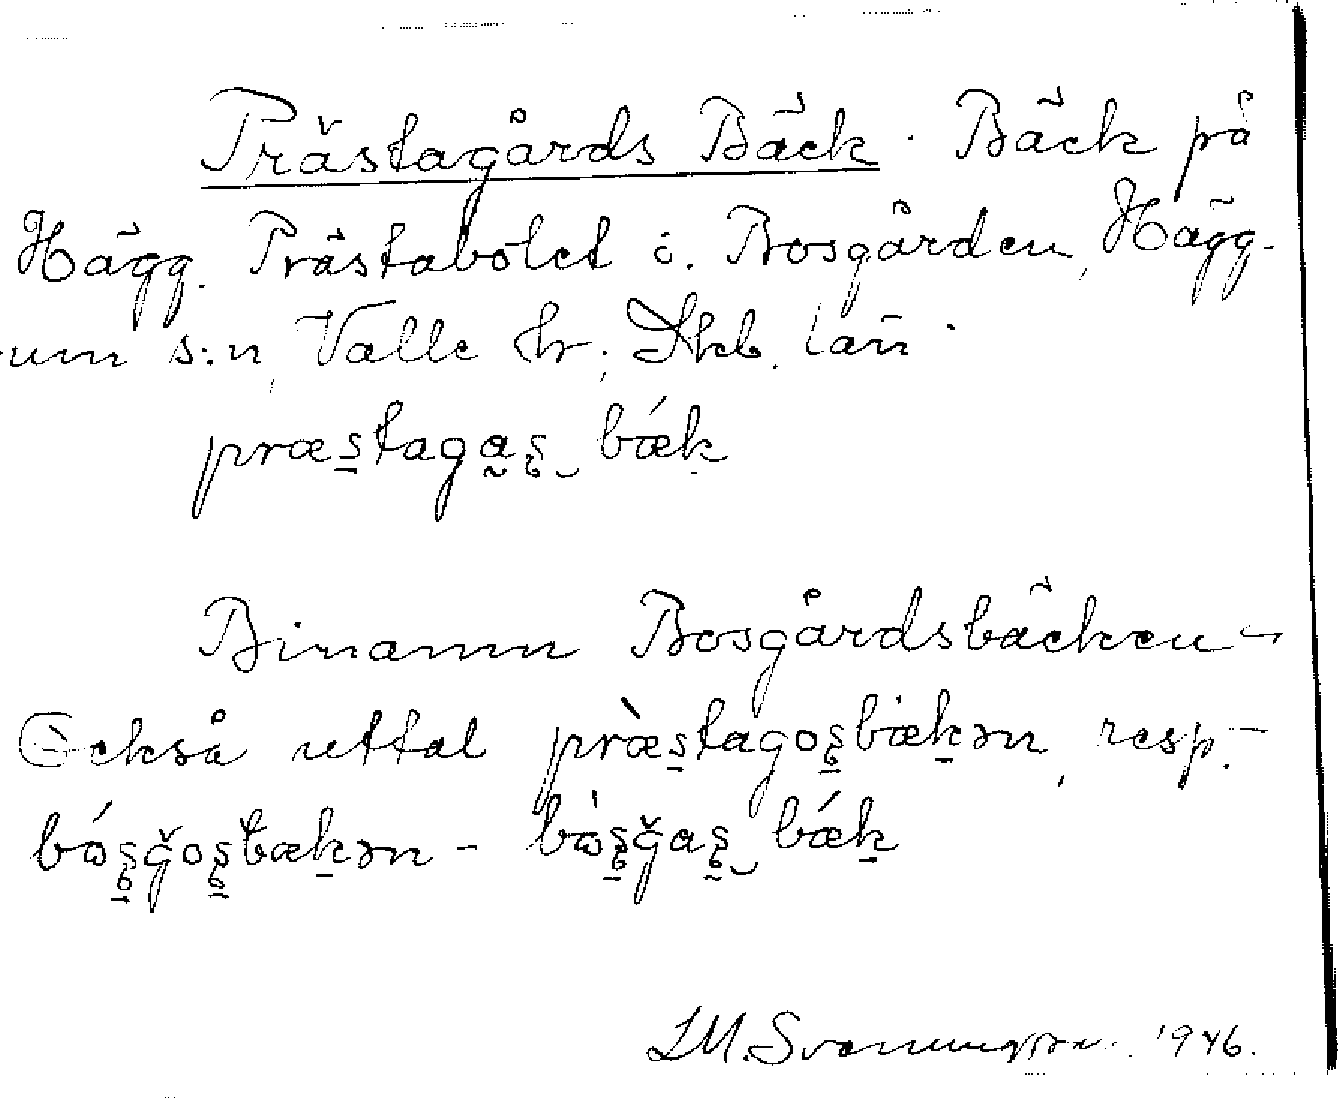 Prästagårds Bäck. Bäck på
Hägg. Prästabolet i. Bosgården, Hägg-
um s:n, Valle hr; Skb. län.
præstagaʂ bǽk
Binamn Bosgårdsbäcken-
Också uttal præ̀stagoʂbækən, resp.
bɷ́ʂğoʂbækən - bɷ̀ʂğaʂ bǽk
1946.